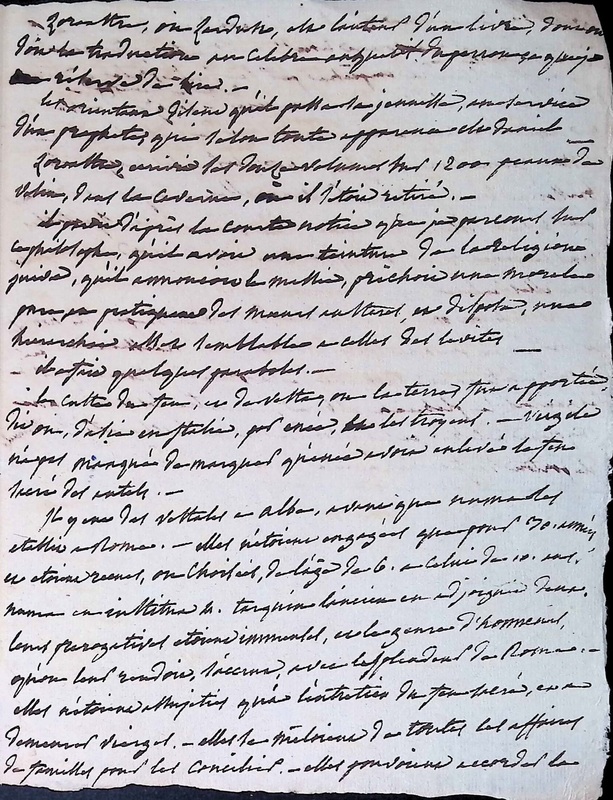 Zoroastre, ou Zerdust, est l'auteur d'un livre, dont on
doit la traduction au celebre anquetil du perron, et que je
me réserve de lire. —
les orientaux disent qu'il passa sa jeunesse, au service
d'un prophete, qui selon toute apparence est daniel —
Zoroastre, ecrivit les douze volumes sur 1200 peaux de
velin, dans la caverne, où il s'étoit retiré. —
il paroit d'après la courte notice que je parcours sur
ce philosophe, qu'il avoit une teinture de la religion
juive, qu'il annonçoit le messie, prêchoit une morale
pure, pratiquoit des moeurs austeres, et disposa, une
hierarchie assez semblable a celles des levites —
il a fait quelques paraboles. —
le culte du feu, et de vesta, ou la terre, fut apporté
dit on, d'asie en italie, par enée, les troyens. — virgile
n'a pas manqué de marquer qu'enée avoit enlevé le feu
sacré des autels. —
Il y eut des vestales a albe, avant que numa les
etablit a Rome. — elles n'étoient engagées que pour 30. années
et etoient reçues, ou choisies, de l'age de 6. a celui de 10. ans.
numa en institua 4. tarquin l'ancien en adjoignit deux.
leurs prerogatives etoient immenses, et le genre d'honneurs,
qu'on leur rendoit, s'accrut, avec la splendeur de Rome. —
elles n'étoient assujeties qu'a l'entretien du feu sacré, et a
demeurer vierges. — elles se mêloient de toutes les affaires
de familles pour les concilier. — elles pouvoient accorder le